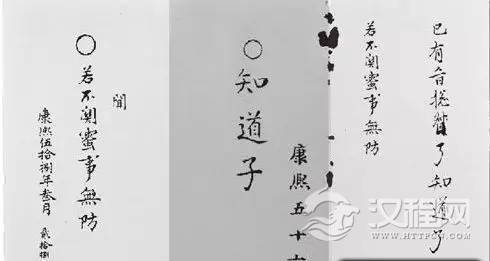 已有旨了知道了
若不関蜜事無防
康熙五十
〇知道子
聞
〇若不関蜜事無防
康熙伍拾捌年叁月 貳拾捌
汉程网
HTTPCN.COM